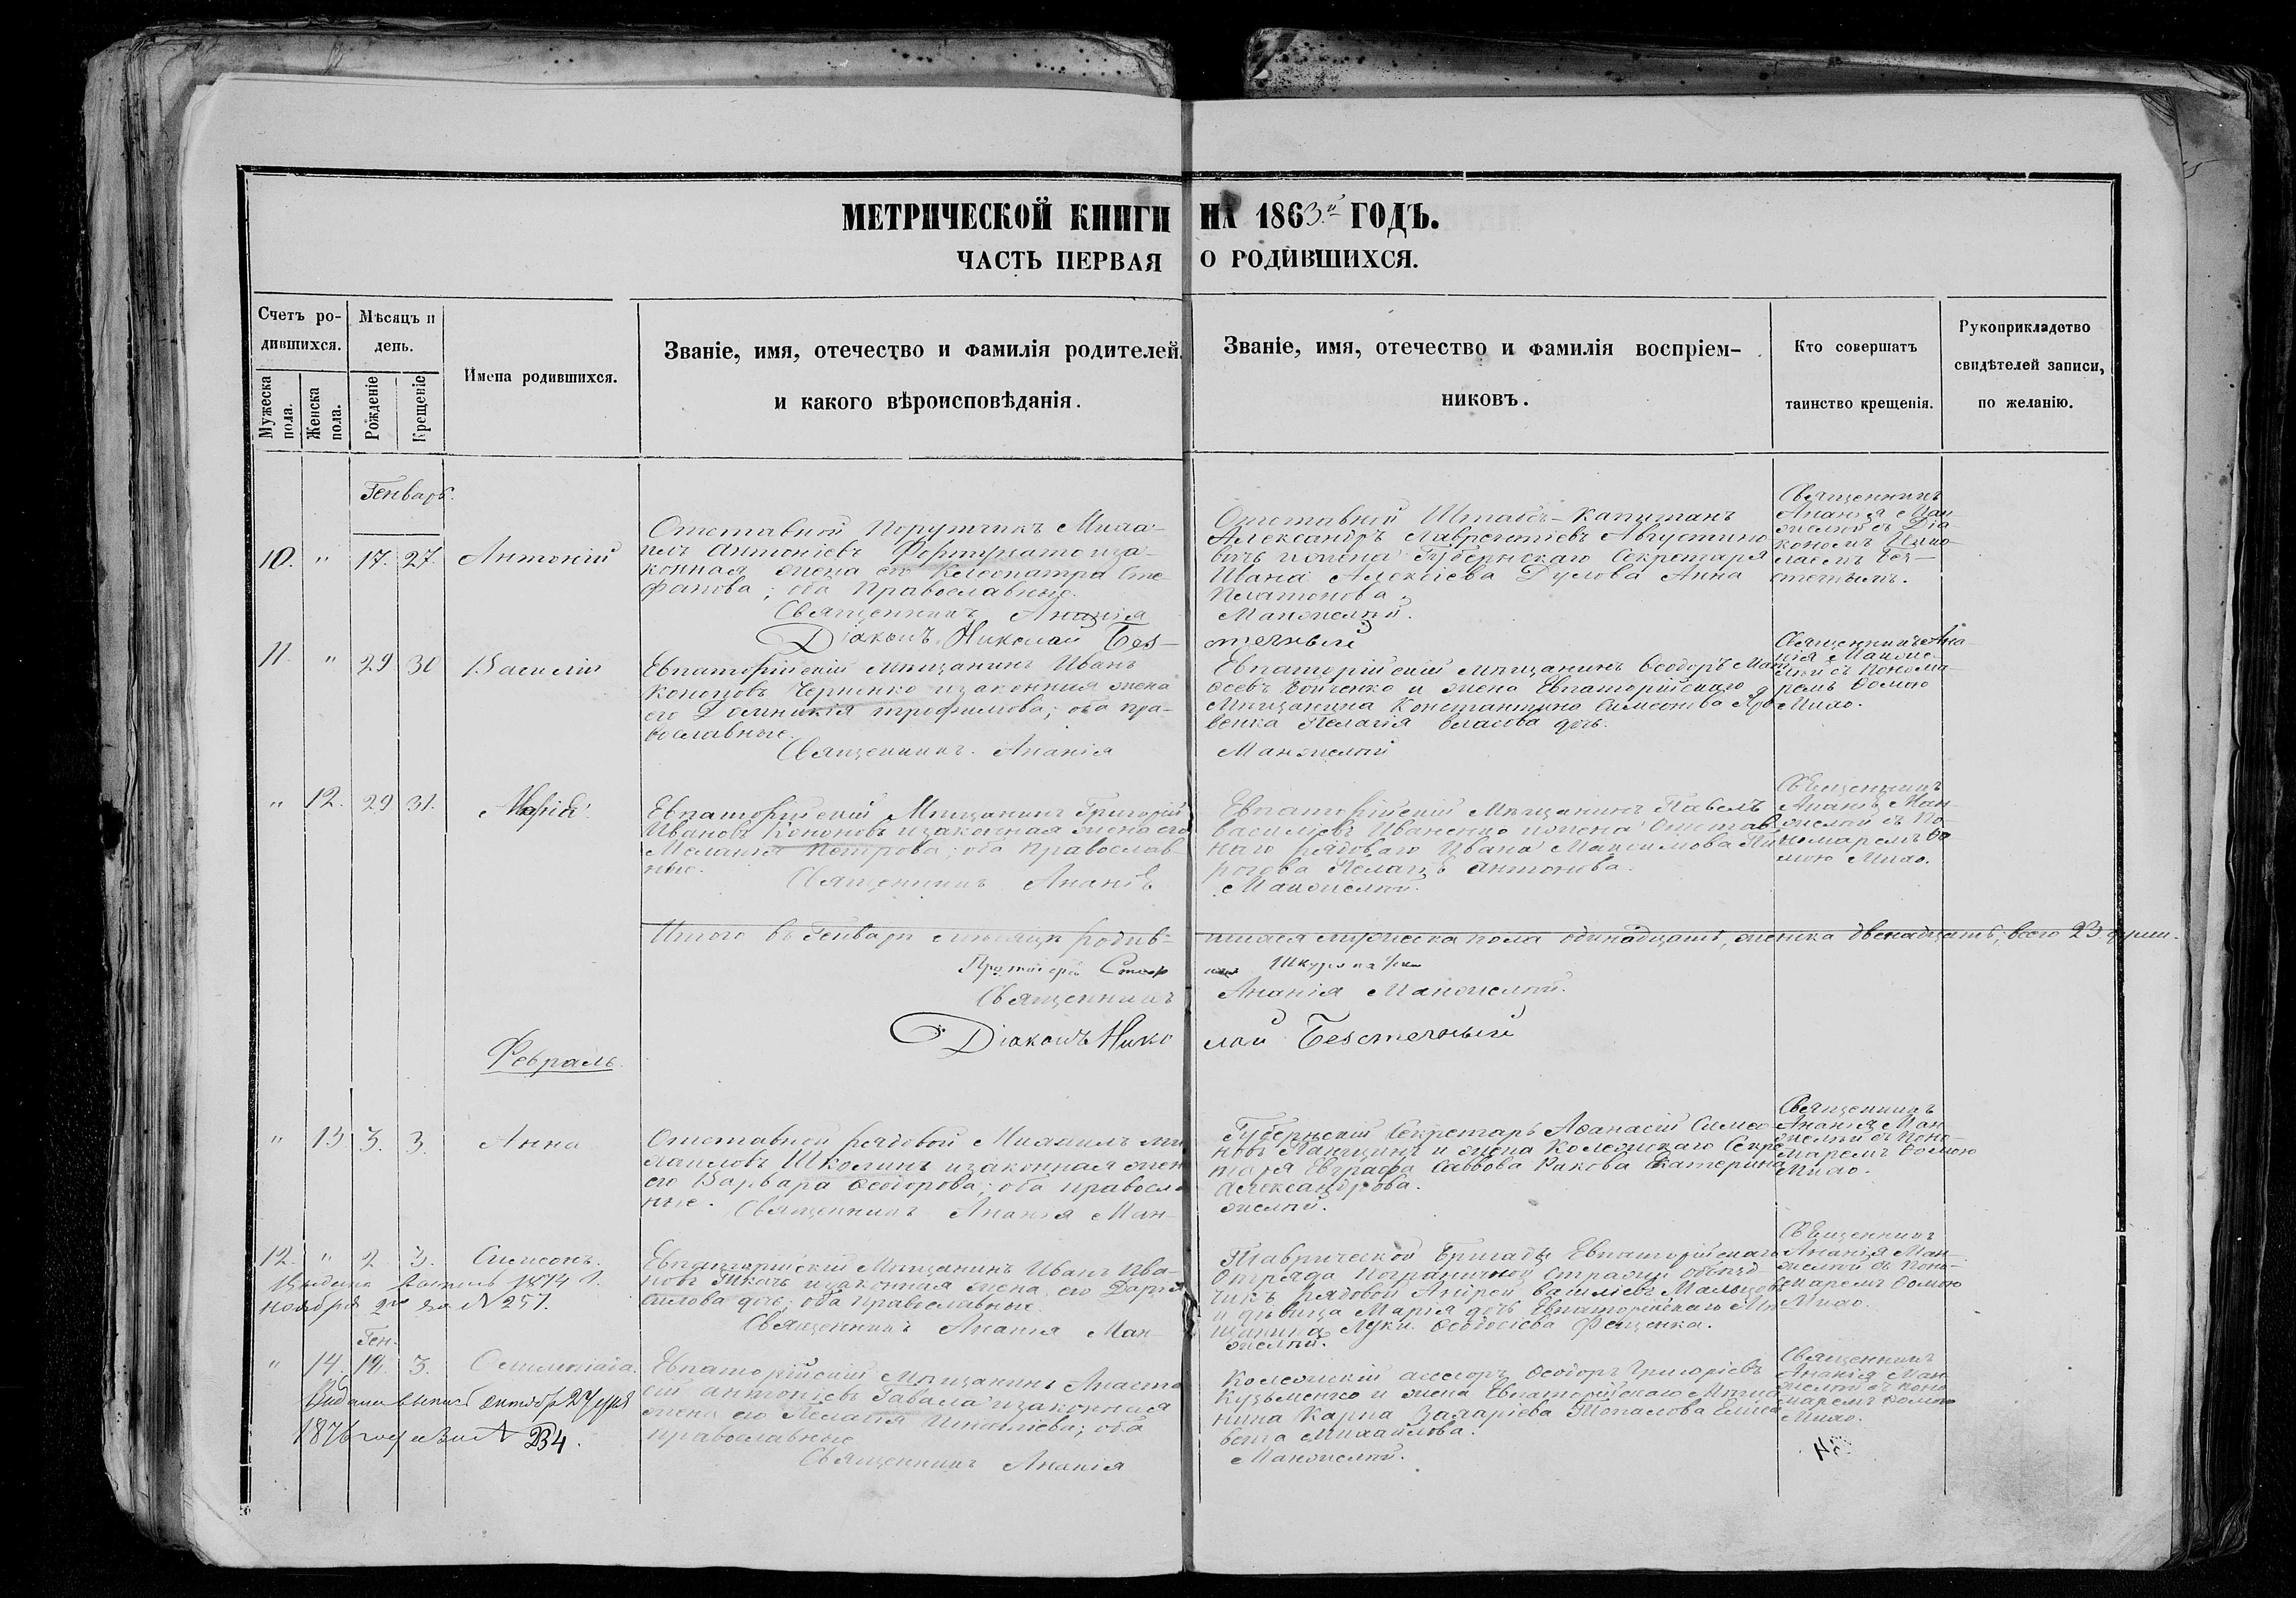 МЕТРИЧЕСКОЙ КНИГИ НА 1863й ГОДЪ.
ЧАСТЬ ПЕРВАЯ О РОДИВШИХСЯ.
Счетъ ро-
дившихся.
Мужеска пола.
Женска пола.
Мѣсяцъ и
день.
Рожденіе
Крещеніе
Имена родившихся.
Званіе, имя, отечество и фамилія родителей,
и какого вѣроисповѣданія.
Званіе, имя, отечество и фамилія воспріем-
никовъ.
Кто совершатъ
таинство крещенія.
Рукоприкладство
свидѣтелей записи,
по желанію.
Генварь.
10. " 17. 27. Антоній
Отставной Порутчикъ Миха-
илъ Антоніевъ Фортунато иза-
конная жена его Клеопатра Сте-
фанова; оба Православные.
Священникъ Ананія
Діаконъ Николай Без-
Отставной Штабсъ-Капитанъ
Александръ Лаврентіевъ Августино
вичъ и жена Губернскаго Секретаря
Ивана Алексіева Дулова Анна
Платонова
Манжелѣй.
течный
Священникъ
Ананія Ман-
желѣй съ Діа
кономъ Нико-
лаемъ Без-
течнымъ.
11. " 29 30 Василій
Евпаторійскій мѣщанинъ Иванъ
Кононовъ Черненко изаконная жена
его Домникія Трофимова; оба пра-
вославные.
Священникъ Ананія
Евпаторійскій мѣщанинъ Ѳеодоръ
Ѳеевъ Бойченко и жена Евпаторійскаго
Мѣщанина Константина Симеонова
венка Пелагія Власова дочь.
Манжелѣй
Священникъ Ана-
нія Манже-
лѣй съ Понома-
ремъ Ѳомою
Михо.
" 12. 29 31. Марія
Евпаторійскій Мѣщанинъ Григорій
Ивановъ Кононовъ изаконная жена его
Меланія Петрова; оба Православ-
ные.
Священникъ Ананія
Евпаторійскій Мѣщанинъ Павелъ
Василіевъ Иваненко и жена Отстав
наго рядоваго Ивана Максимова Пи
рогова Пелагія Антонова.
Манжелѣй.
Священникъ
Ананія Ман-
желѣй съ По-
номаремъ Ѳо
мою Михо.
Итого въ Генварѣ мѣсяцѣ родив-
шихся мужеска пола одинадцать, женска двенадцать, всего 23 души.
Протоіерей
Священникъ Ананія Манжелѣй.
Діаконъ Нико лай Безтечный
Февраль.
" 13 3. 3. Анна
Отставной рядовой Михаилъ Ми
хаиловъ Школинъ изаконная жена
его Варвара Ѳеодорова; оба правосла
ные.
Священникъ Ананія Ман-
Губернскій Секретарь Аѳанасій Симео
новъ Панщинъ и жена Колежскаго Секре
таря Евграфа Саввова Ракова Екатерина
Александрова.
желѣй.
Священникъ
Ананія Ман
желѣй съ Поно-
маремъ Ѳомою
Михо.
12. " 2 3. Симеонъ.
1874 г.
ноября 2го за № 257.
Евпаторійскій Мѣщанинъ Иванъ Ива-
новъ Ткачъ изаконная жена его Дарія
силова дочь; оба Православные.
Священникъ Ананія Ман-
Таврической Бригады Евпаторійскаго
Отряда Пограничной Стражи объѣзд
чикъ рядовой Андрей Василіевъ Мальцовъ
и дѣвица Марія дочь Евпаторійскаго Мѣ
щанина Луки Ѳеодосіева Фещенка.
желѣй.
Священникъ
Ананія Ман-
желѣй съ Поно-
маремъ Ѳомою
Михо.
Ген.
" 14. 19. 3. Олимпіада.
Выдана выпись октябр 27 дня
1876 года за № 234.
Евпаторійскій Мѣщанинъ Анаста
сій Антоніевъ Гавала изаконная
жена его Пелагія Игнатіева; оба
православные
Священникъ Ананія
Колежскій асессоръ Ѳеодоръ Григоріевъ
Кузьменко и жена Евпаторійскаго Мѣща
нина Карпа Захаріева Топалова Елиса
вета Михайлова.
Манжелѣй.
Священникъ
Ананія Ман
желѣй съ Поно
маремъ Ѳомою
Михо.